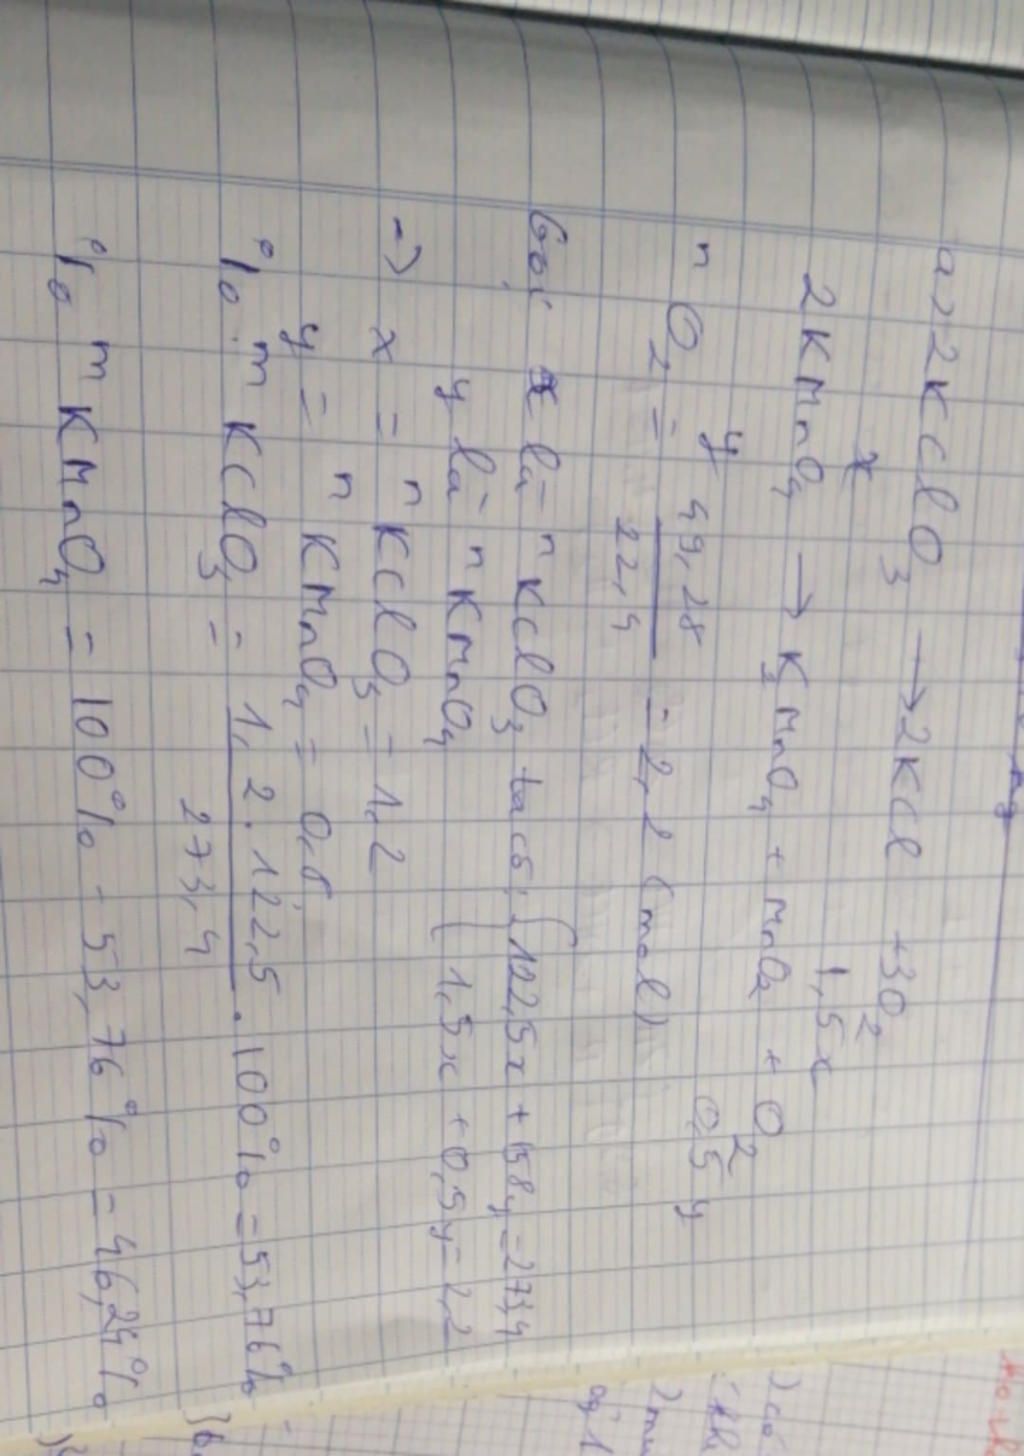 a> 2KClO3 → 2KCl + 3O2
x 1,5x
2KMnO4 → K2MnO4 + MnO2 + O2
y 0,5y
nO2 = 49,28 / 22,4 = 2,2 (mol)
Gọi x là nKClO3 ta có: { 122,5x + 158y = 273,4
y là nKMnO4 1,5x + 0,5y = 2,2
→ x = nKClO3 = 1,2
y = nKMnO4 = 0,8
% mKClO3 = 1,2 . 122,5 / 273,4 . 100% = 53,76%
% mKMnO4 = 100% - 53,76% = 46,24%